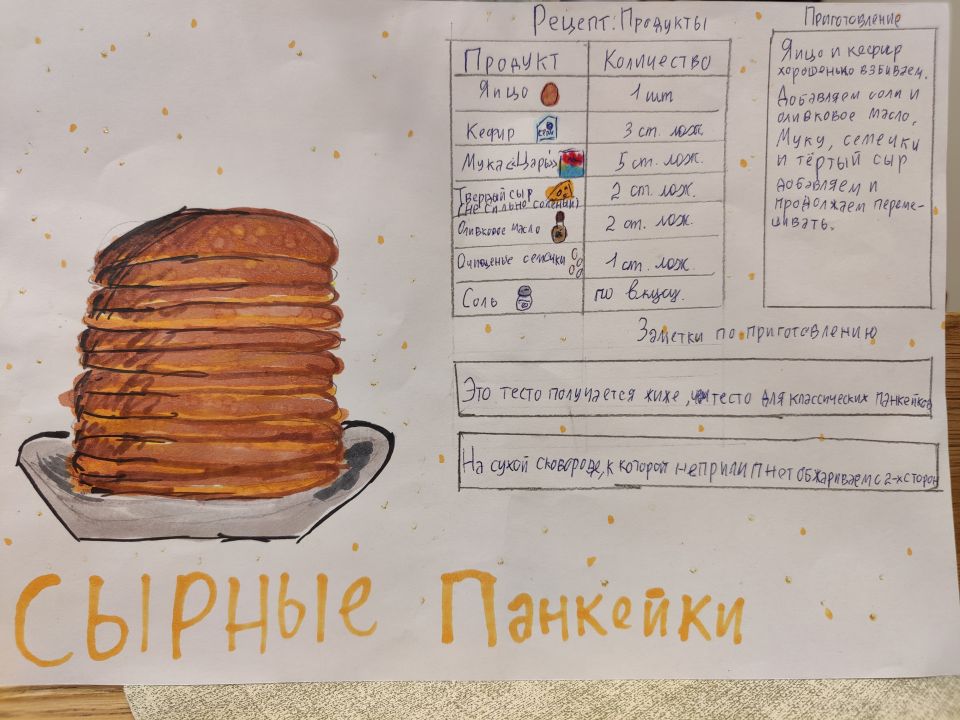 Рецепт: Продукты
Продукт Количество
Яицо 1 шт
Кефир 3 ст. лож.
Мука «Царь» 5 ст. лож.
Твердый сыр 2 ст. лож.
(не сильно соленый)
Оливковое масло 2 ст. лож.
Очищеные семечки 1 ст. лож.
Соль по вкусу.
Приготовление
Яицо и кефир
хорошенько взбиваем.
Добавляем соли и
оливковое масло,
Муку, семечки
и тёртый сыр
добавляем и
продолжаем переме-
шивать.
Заметки по приготовлению
Это тесто получается жиже, тесто для классических панкейков
На сухой сковороде, к которой неприлипнет обжариваем с 2-х сторон
Сырные Панкейки